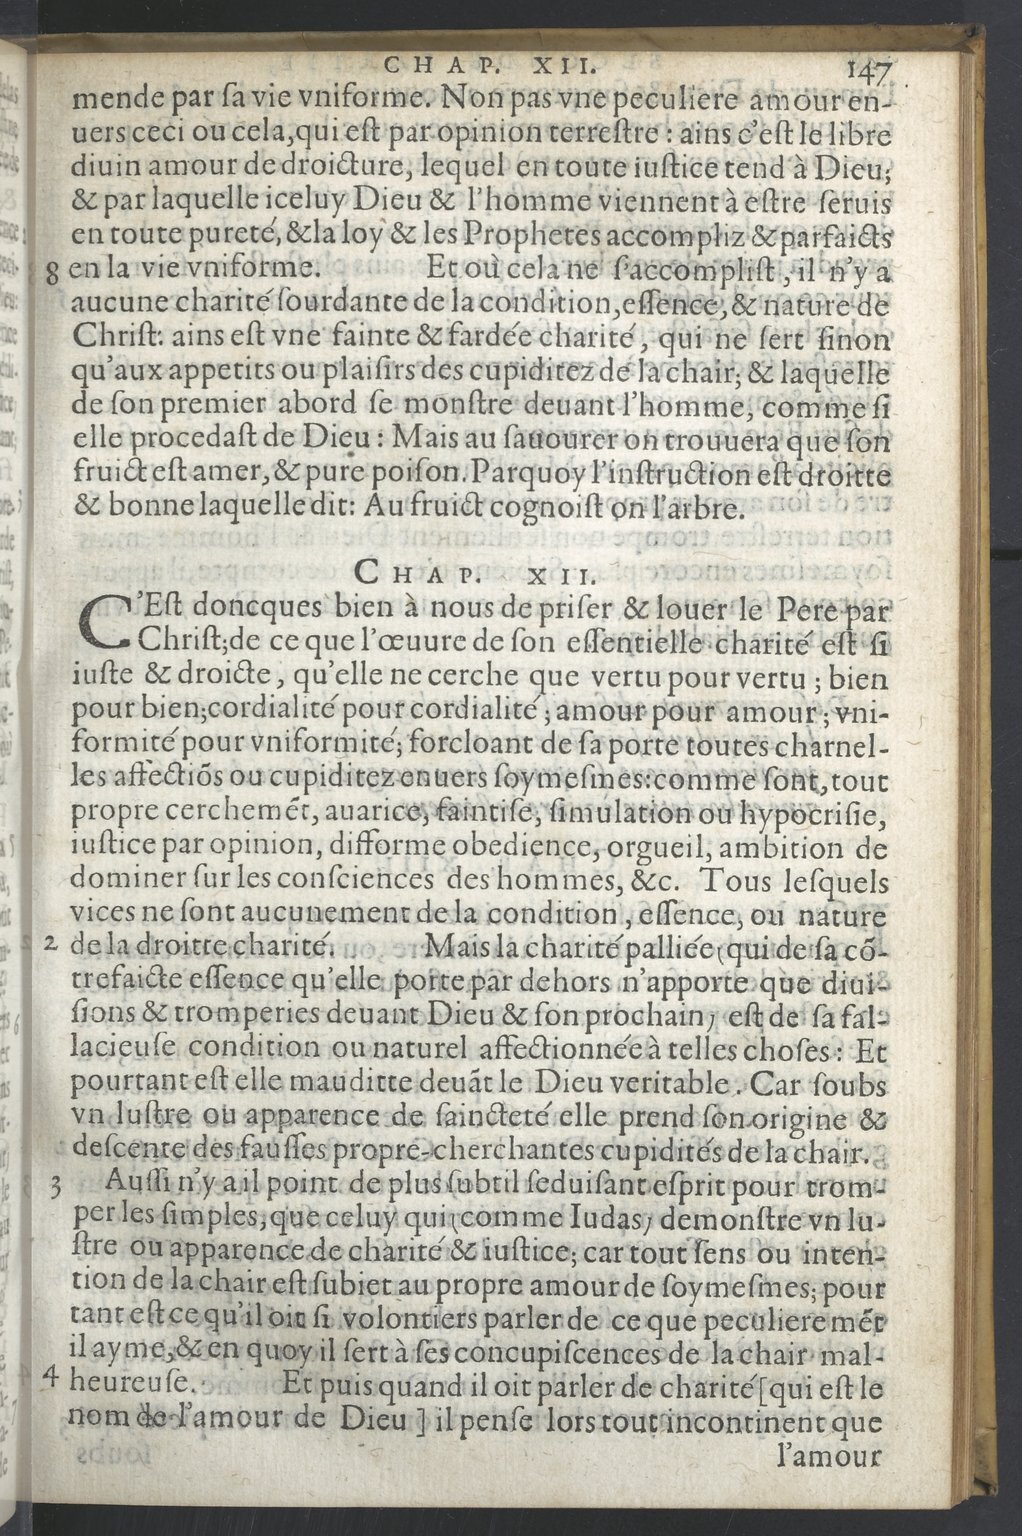 CHAP. XII. 147
mende par ſa vie vniforme. Non pas vne peculiere amour en-
uers ceci ou cela, qui eſt par opinion terreſtre : ains c'eſt le libre
diuin amour de droicture, lequel en toute iuſtice tend à Dieu;
& par laquelle iceluy Dieu & l'homme viennent à eſtre ſeruis
en toute pureté, & la loy & les Prophetes accompliz & parfaicts
8 en la vie vniforme. Et où cela ne s'accompliſt, il n'y a
aucune charité ſourdante de la condition, eſſence, & nature de
Chriſt: ains eſt vne fainte & fardée charité, qui ne ſert ſinon
qu'aux appetits ou plaiſirs des cupiditez de la chair; & laquelle
de ſon premier abord ſe monſtre deuant l'homme, comme ſi
elle procedaſt de Dieu : Mais au ſauourer on trouuera que ſon
fruict eſt amer, & pure poiſon. Parquoy l'inſtruction eſt droitte
& bonne laquelle dit: Au fruict cognoiſt on l'arbre.
CHAP. XII.
C'Eſt doncques bien à nous de priſer & louer le Pere par
Chriſt; de ce que l'œuure de ſon eſſentielle charité eſt ſi
iuſte & droicte, qu'elle ne cerche que vertu pour vertu ; bien
pour bien; cordialité pour cordialité; amour pour amour; vni-
formité pour vniformité; forcloant de ſa porte toutes charnel-
les affectiõs ou cupiditez enuers ſoymeſmes: comme ſont, tout
propre cerchemẽt, auarice, faintiſe, ſimulation ou hypocriſie,
iuſtice par opinion, difforme obedience, orgueil, ambition de
dominer ſur les conſciences des hommes, &c. Tous leſquels
vices ne ſont aucunement de la condition, eſſence, ou nature
2 de la droitte charité. Mais la charité palliée (qui de ſa cõ-
trefaicte eſſence qu'elle porte par dehors n'apporte que diui-
ſions & tromperies deuant Dieu & ſon prochain) eſt de ſa fal-
lacieuſe condition ou naturel affectionnée à telles choſes : Et
pourtant eſt elle mauditte deuãt le Dieu veritable. Car ſoubs
vn luſtre ou apparence de ſaincteté elle prend ſon origine &
deſcente des fauſſes propre-cherchantes cupidités de la chair.
3 Auſſi n'y a il point de plus ſubtil ſeduiſant eſprit pour trom-
per les ſimples, que celuy qui (comme Iudas) demonſtre vn lu-
ſtre ou apparence de charité & iuſtice; car tout ſens ou inten-
tion de la chair eſt ſubiet au propre amour de ſoymeſmes; pour
tant eſt ce qu'il oit ſi volontiers parler de ce que peculiere mẽt
il ayme, & en quoy il ſert à ſes concupiſcences de la chair mal-
4 heureuſe. Et puis quand il oit parler de charité [qui eſt le
nom de l'amour de Dieu] il penſe lors tout incontinent que
l'amour